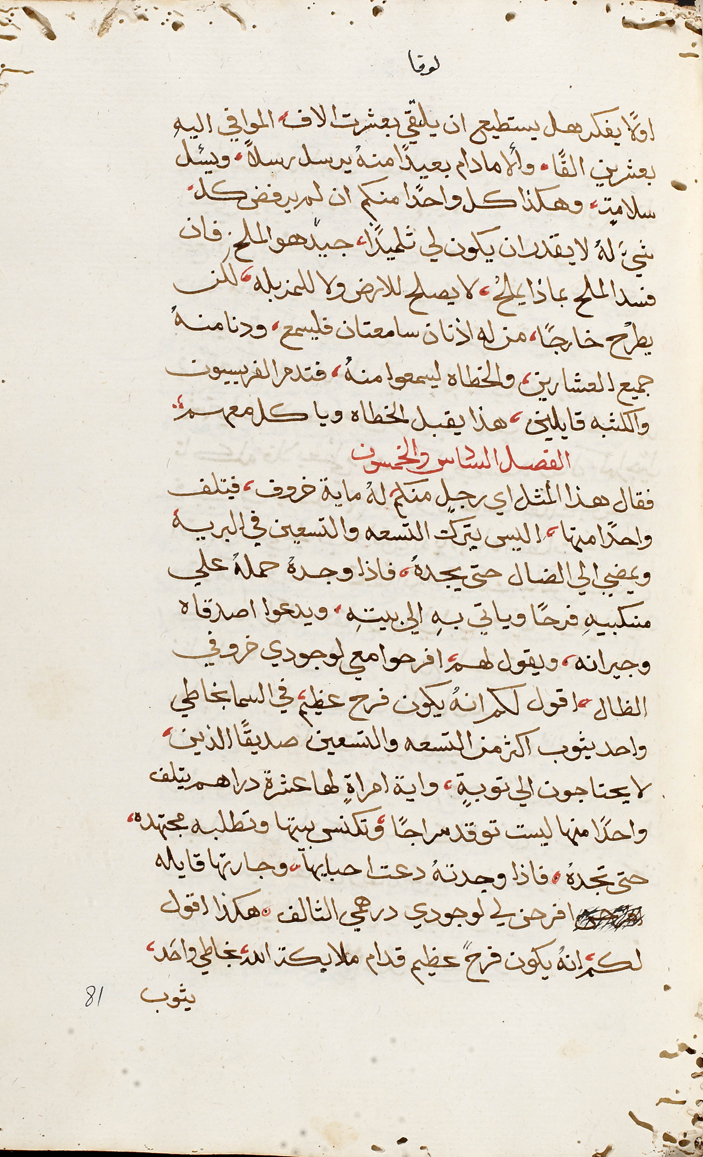 لوقا
اولًا يفكر هل يستطيع ان يلتقي بعشرت الاف، الموافي اليه
بعشرين الفًا، والا مادام بعيدًا منهُ يرسل رسلاً، ويسُل
سلامةٍ، وهكذا كل واحدًا منكم ان لم يرفض كل
شيءَ لهُ لا يقدر ان يكون لي تلميذًا، جيدٌ هو الملح فان
فسد الملح بماذا يملحُ، لا يصلح للارض ولا للمزبله، لكن
يطرح خارجًا، من له اذنان سامعتان فليسمع، ودنا منهُ
جميع العشارين، والخطاه ليسمعوا منهُ، فتدمر الفريسيون
والكتبه قايلين، هذا يقبل الخطاه وياكل معهم،
الفصل السادس والخمسون
فقال هذا المثل اي رجلٍ منكم لهُ ماية خروف، فيتلف
واحدًا منها، اليس يترك التسعه والتسعين في البرية
ويمضي الي الضال حتي يجدهُ، فاذا وجدهُ حملهُ علي
منكبيهِ فرحًا وياتي بهِ الي بيتهِ، ويدعوا اصدقاه
وجيرانه، ويقول لهم، افرحوا معي لوجودي خروفي
الظال، اقول لكم انهُ يكون فرح عظيم، في السما بخاطي
واحد يثوب اكثر من التسعه والتسعين صديقًا الذين،
لا يحتاجون الي توبةٍ، واية امراةٍ لها عشرة دراهم يتلف
واحدًا منها ليست توقد سراجًا وتكنس بيتها وتطلبه مجتهده،
حتي تجدهُ، فاذا وجدتهُ دعت احبايها، وجارتها قايله
افرحن لي لوجودي درهمي التالف، هكذا اقول
لكم، انهُ يكون فرحً عظيم قدام ملايكة الله، بخاطي واحد،
يثوب
81